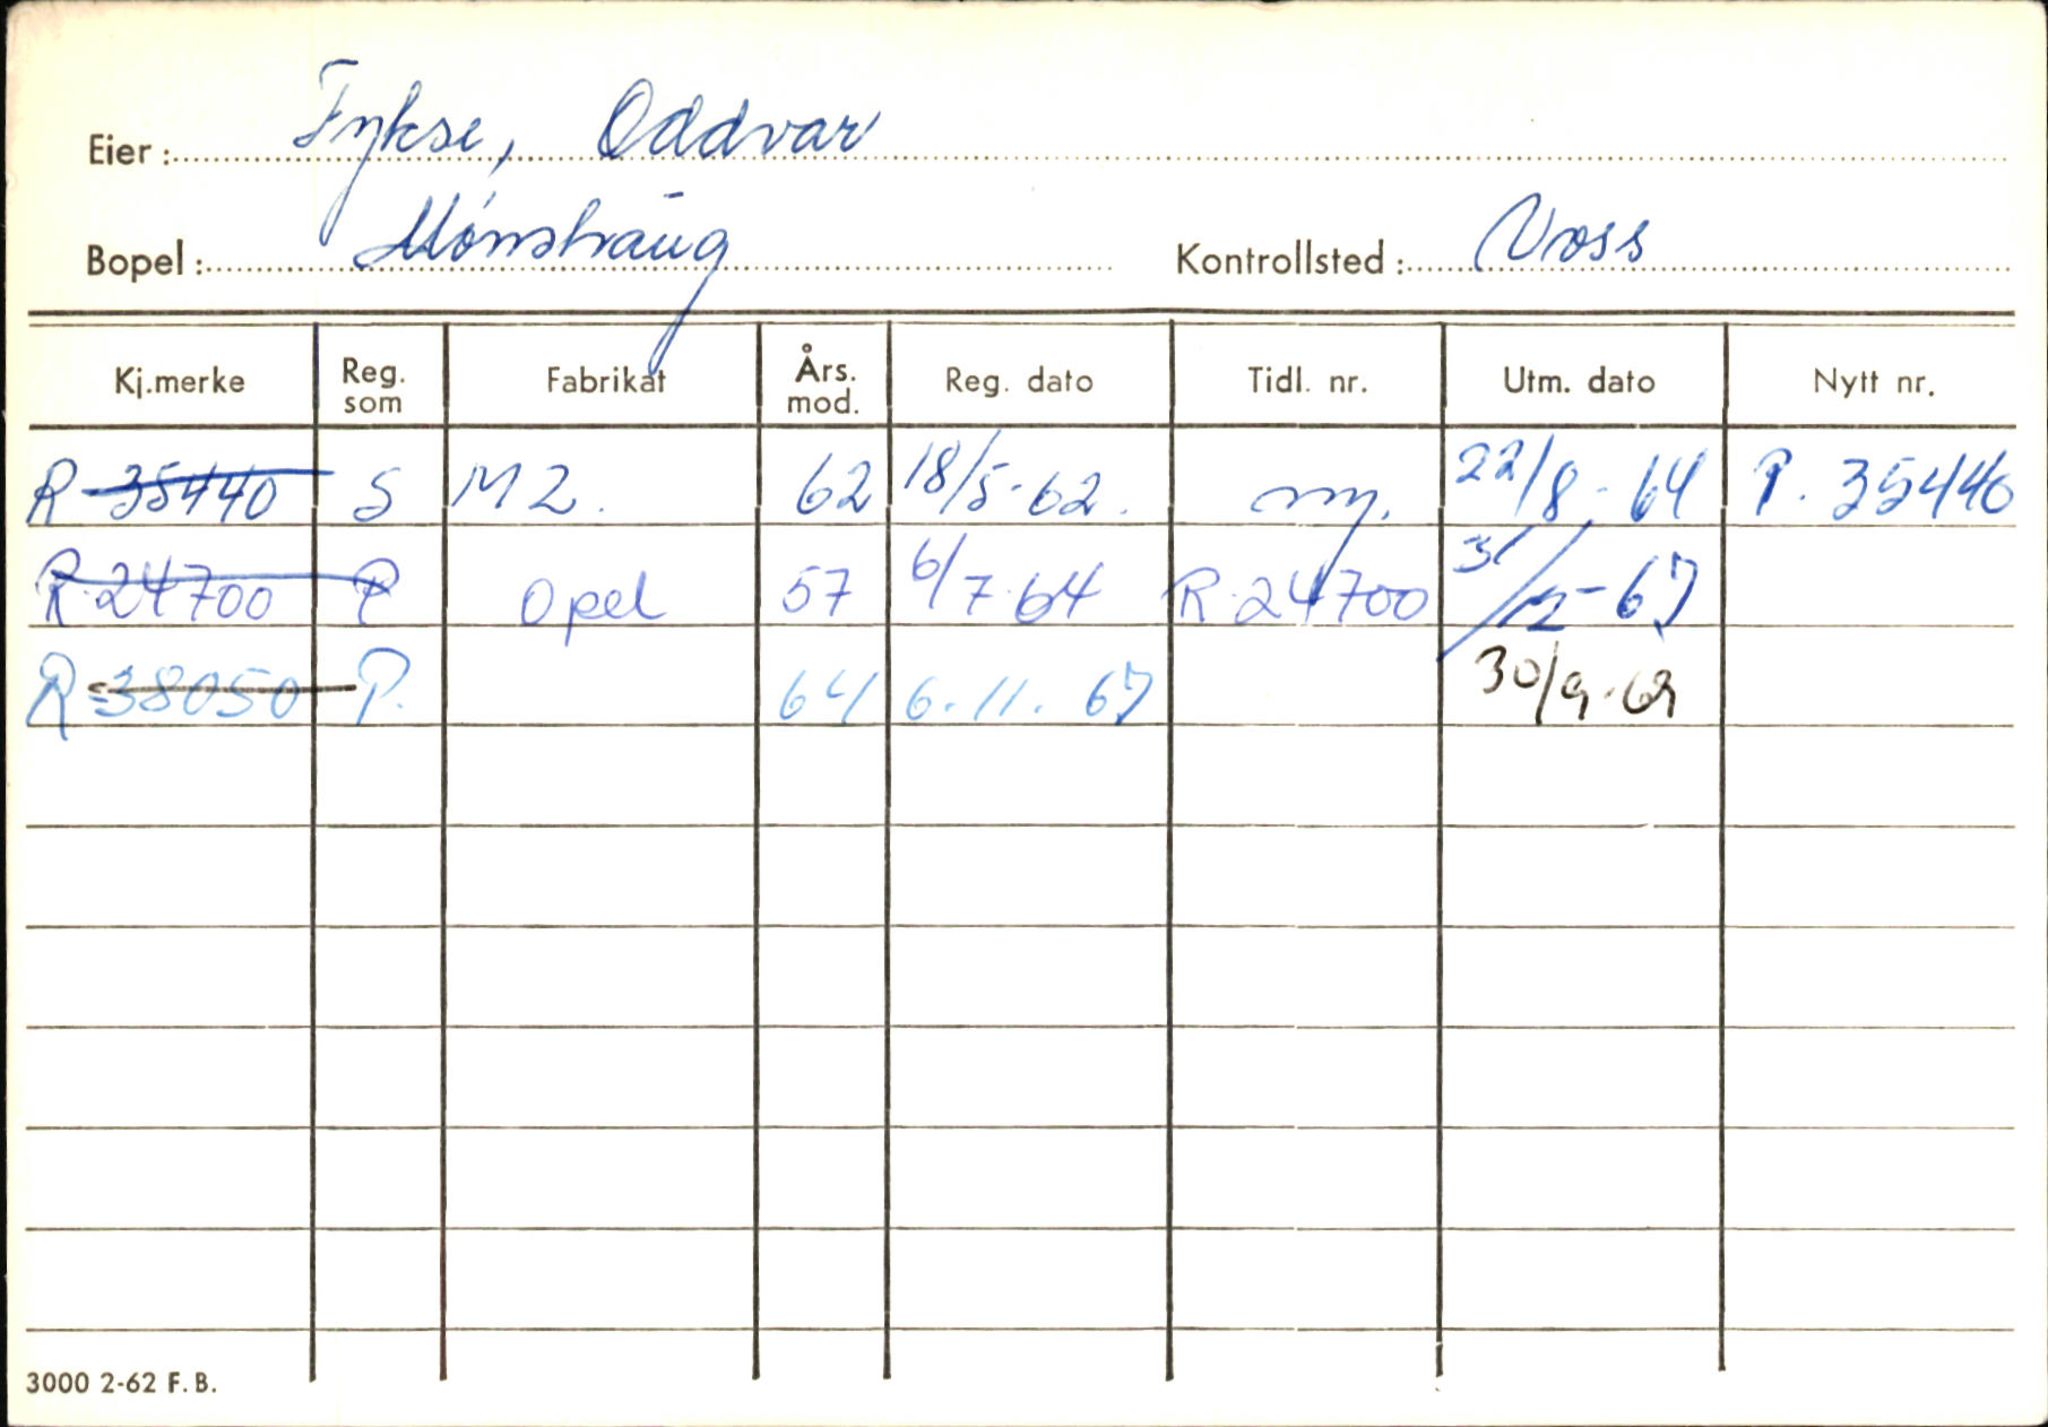 Eier: Fykse, Oddvar
Bopel: Mønshaug Kontrollsted: Voss
Kj.merke Reg. som Fabrikat Års. mod. Reg. dato Tidl. nr. Utm. dato Nytt nr.
R 35440 S MZ. 62 18/5-62. ny. 22/8-64 P. 35440
R 24700 P Opel 57 6/7-64 R 24700 67
R 38050 P. 64 6.11.67 30/9-69
3000 2-62 F.B.